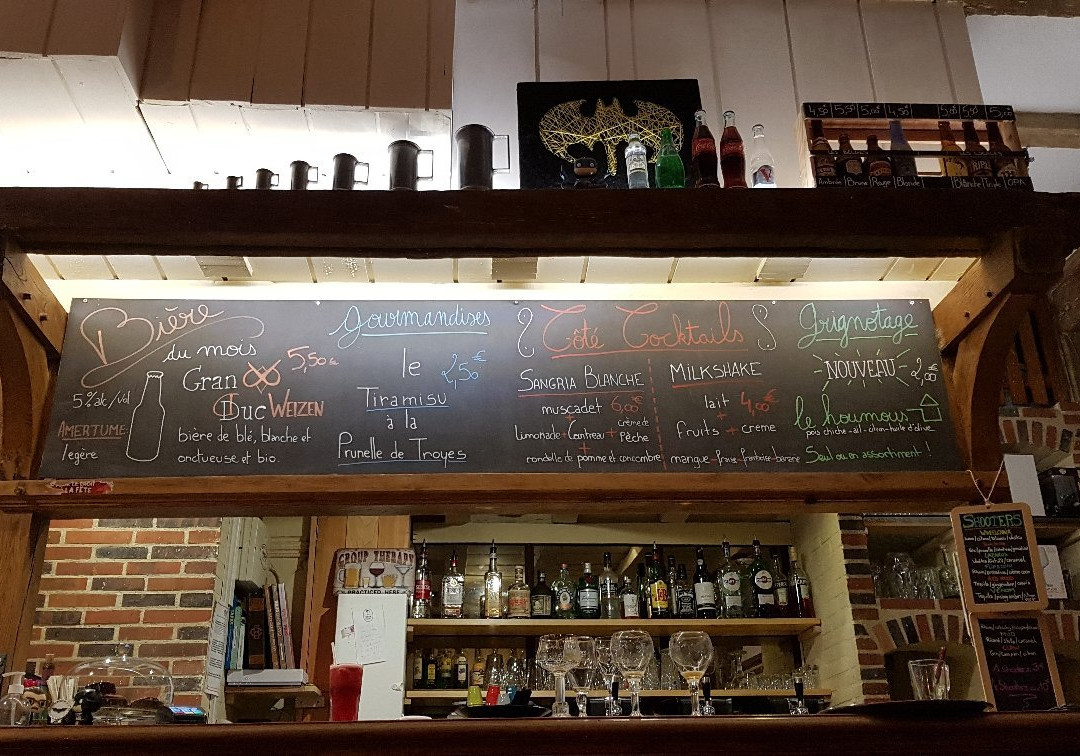 4,50 5,50 5,00 4,50 5,00 5,50 5,00
Ambrée Brune Rouge Blonde Blanche Triple IPA
Bière
du mois
5,50€
Gran
Duc WEIZEN
5% alc/vol
AMERTUME
légère
bière de blé, blanche et
onctueuse et bio.
Gourmandises
le 2,50€
Tiramisu
à la
Prunelle de Troyes
Côté Cocktails
SANGRIA BLANCHE
muscadet 6,00€
+
limonade + Cointreau + crème de Pêche
+
rondelle de pomme et concombre
MILKSHAKE
lait 4,00€
+ +
fruits + creme
mangue - fraise - framboise - banane
Grignotage
NOUVEAU 2,00€
le houmous
pois chiche - ail - citron - huile d'olive
Seul ou en assortiment !
LA FÊTE
GROUP THERAPY
PRACTICED HERE
SHOOTERS